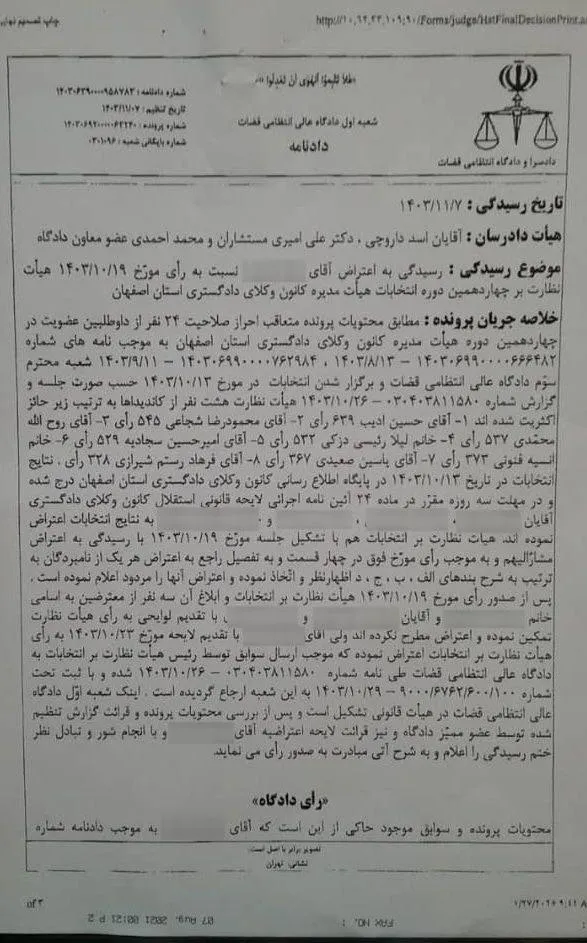 چاپ تصمیم نهایی
http://10,94,33,109:90/Forms/judge/HstFinalDecisionPrint.a
«فلا تتبعوا الهوی ان تعدلوا»
شماره دادنامه: ۱۴۰۳۰۶۳۹۰۰۰۰۹۵۸۷۸۳
تاریخ تنظیم: ۱۴۰۳/۱۱/۰۷
شماره پرونده: ۱۴۰۳۰۶۹۲۰۰۰۰۰۶۳۲۴۰
شماره بایگانی شعبه: ۰۳۰۱۰۹۶
شعبه اول دادگاه عالی انتظامی قضات
دادنامه
دادسرا و دادگاه انتظامی قضات
تاریخ رسیدگی: ۱۴۰۳/۱۱/۷
هیأت دادرسان: آقایان اسد داروچی، دکتر علی امیری مستشاران و محمد احمدی عضو معاون دادگاه
موضوع رسیدگی: رسیدگی به اعتراض آقای نسبت به رأی مورّخ ۱۴۰۳/۱۰/۱۹ هیأت
نظارت بر چهاردهمین دوره انتخابات هیأت مدیره کانون وکلای دادگستری استان اصفهان
خلاصه جریان پرونده: مطابق محتویات پرونده متعاقب احراز صلاحیت ۲۴ نفر از داوطلبین عضویت در
چهاردهمین دوره هیأت مدیره کانون وکلای دادگستری استان اصفهان به موجب نامه های شماره
۱۴۰۳۰۶۹۹۰۰۰۰۶۶۶۴۸۲ – ۱۴۰۳/۸/۱۳ ، ۱۴۰۳۰۶۹۹۰۰۰۰۷۶۲۹۸۴ – ۱۴۰۳/۹/۱۱ شعبه محترم
سوّم دادگاه عالی انتظامی قضات و برگزار شدن انتخابات در مورخ ۱۴۰۳/۱۰/۱۳ حسب صورت جلسه و
گزارش شماره ۰۳۰۴۰۳۸۱۱۵۸۰ – ۱۴۰۳/۱۰/۲۶ هیأت نظارت هشت نفر از کاندیداها به ترتیب زیر حائز
اکثریت شده اند ۱- آقای حسین ادیب ۶۳۹ رأی ۲- آقای محمودرضا شجاعی ۵۴۵ رأی ۳- آقای روح الله
محمّدی ۵۳۷ رأی ۴- خانم لیلا رئیسی دزکی ۵۳۲ رأی ۵- آقای امیرحسین سجادیه ۵۲۹ رأی ۶- خانم
انسیه فنونی ۳۷۳ رأی ۷- آقای یاسین صعیدی ۳۶۷ رأی ۸- آقای فرهاد رستم شیرازی ۳۲۸ رأی . نتایج
انتخابات در تاریخ ۱۴۰۳/۱۰/۱۳ در پایگاه اطلاع رسانی کانون وکلای دادگستری استان اصفهان درج شده
و در مهلت سه روزه مقرّر در ماده ۲۴ آئین نامه اجرائی لایحه قانونی استقلال کانون وکلای دادگستری
آقایان ، ، و . به نتایج انتخابات اعتراض
نموده اند. هیات نظارت بر انتخابات هم با تشکیل جلسه مورّخ ۱۴۰۳/۱۰/۱۹ با رسیدگی به اعتراض
مشارٌالیهم و به موجب رأی مورّخ فوق در چهار قسمت و به تفصیل راجع به اعتراض هر یک از نامبردگان به
ترتیب به شرح بندهای الف ، ب ، ج ، د اظهارنظر و اتّخاذ نموده و اعتراض آنها را مردود اعلام نموده است .
پس از صدور رأی مورخ ۱۴۰۳/۱۰/۱۹ هیأت نظارت بر انتخابات و ابلاغ آن سه نفر از معترضین به اسامی
خانم و آقایان و با تقدیم لوایحی به رأی هیأت نظارت
تمکین نموده و اعتراض مطرح نکرده اند ولی اقای با تقدیم لایحه مورّخ ۱۴۰۳/۱۰/۲۳ به رأی
هیأت نظارت بر انتخابات اعتراض نموده که موجب ارسال سوابق توسط رئیس هیأت نظارت بر انتخابات به
دادگاه عالی انتظامی قضات طی نامه شماره ۰۳۰۴۰۳۸۱۱۵۸۰ – ۱۴۰۳/۱۰/۲۶ شده و با ثبت تحت
شماره ۹۰۰۰/۶۷۶۲/۶۰۰/۱۰۰ – ۱۴۰۳/۱۰/۲۹ به این شعبه ارجاع گردیده است . اینک شعبه اوّل دادگاه
عالی انتظامی قضات در هیأت قانونی تشکیل است و پس از بررسی محتویات پرونده و قرائت گزارش تنظیم
شده توسط عضو ممیّز دادگاه و نیز قرائت لایحه اعتراضیه آقای و با انجام شور و تبادل نظر
ختم رسیدگی را اعلام و به شرح آتی مبادرت به صدور رأی می نماید.
«رأی دادگاه»
محتویات پرونده و سوابق موجود حاکی از این است که آقای به موجب دادنامه شماره
تصویر برابر با اصل است.
نشانی: تهران
of ۳
07 Aug. 2021 00:21 P 2
FAX NO. :